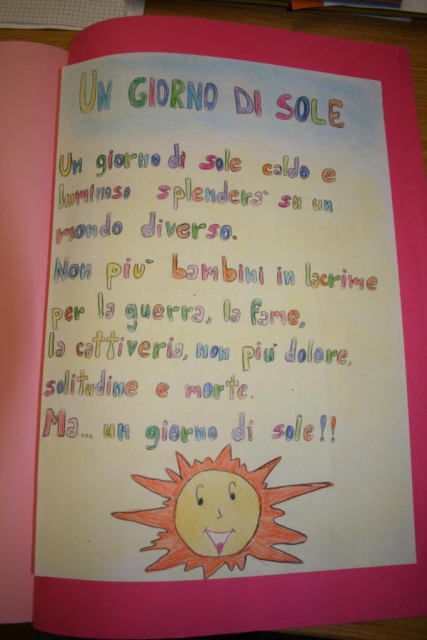 UN GIORNO DI SOLE
Un giorno di sole caldo e
luminoso splenderà su un
mondo diverso.
Non più bambini in lacrime
per la guerra, la fame,
la cattiveria, non più dolore,
solitudine e morte.
Ma... un giorno di sole!!